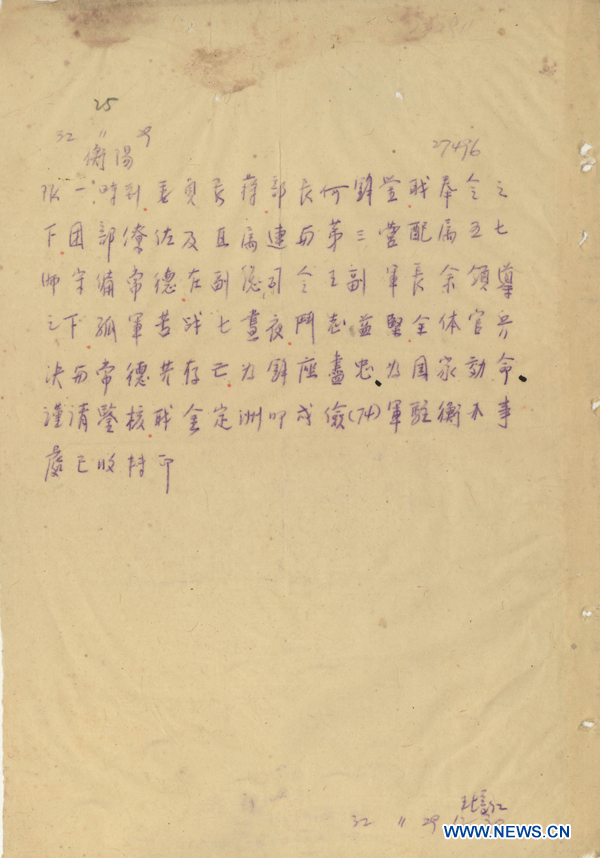 25
32 11 29
衡陽
27496
限一時到委員長蔣部長何鈞鑒職奉令之
下团部僚佐及直属連与第三营配属五七
師守備常德在副總司令王副軍長余領導
之下孤軍苦战七晝夜鬥志益堅全体官兵
决与常德共存亡为鈞座盡忠为国家効命
謹請鑒核职金定洲叩戌儉(74)軍駐衡办事
處已收轉叩
32 11 29
WWW.NEWS.CN